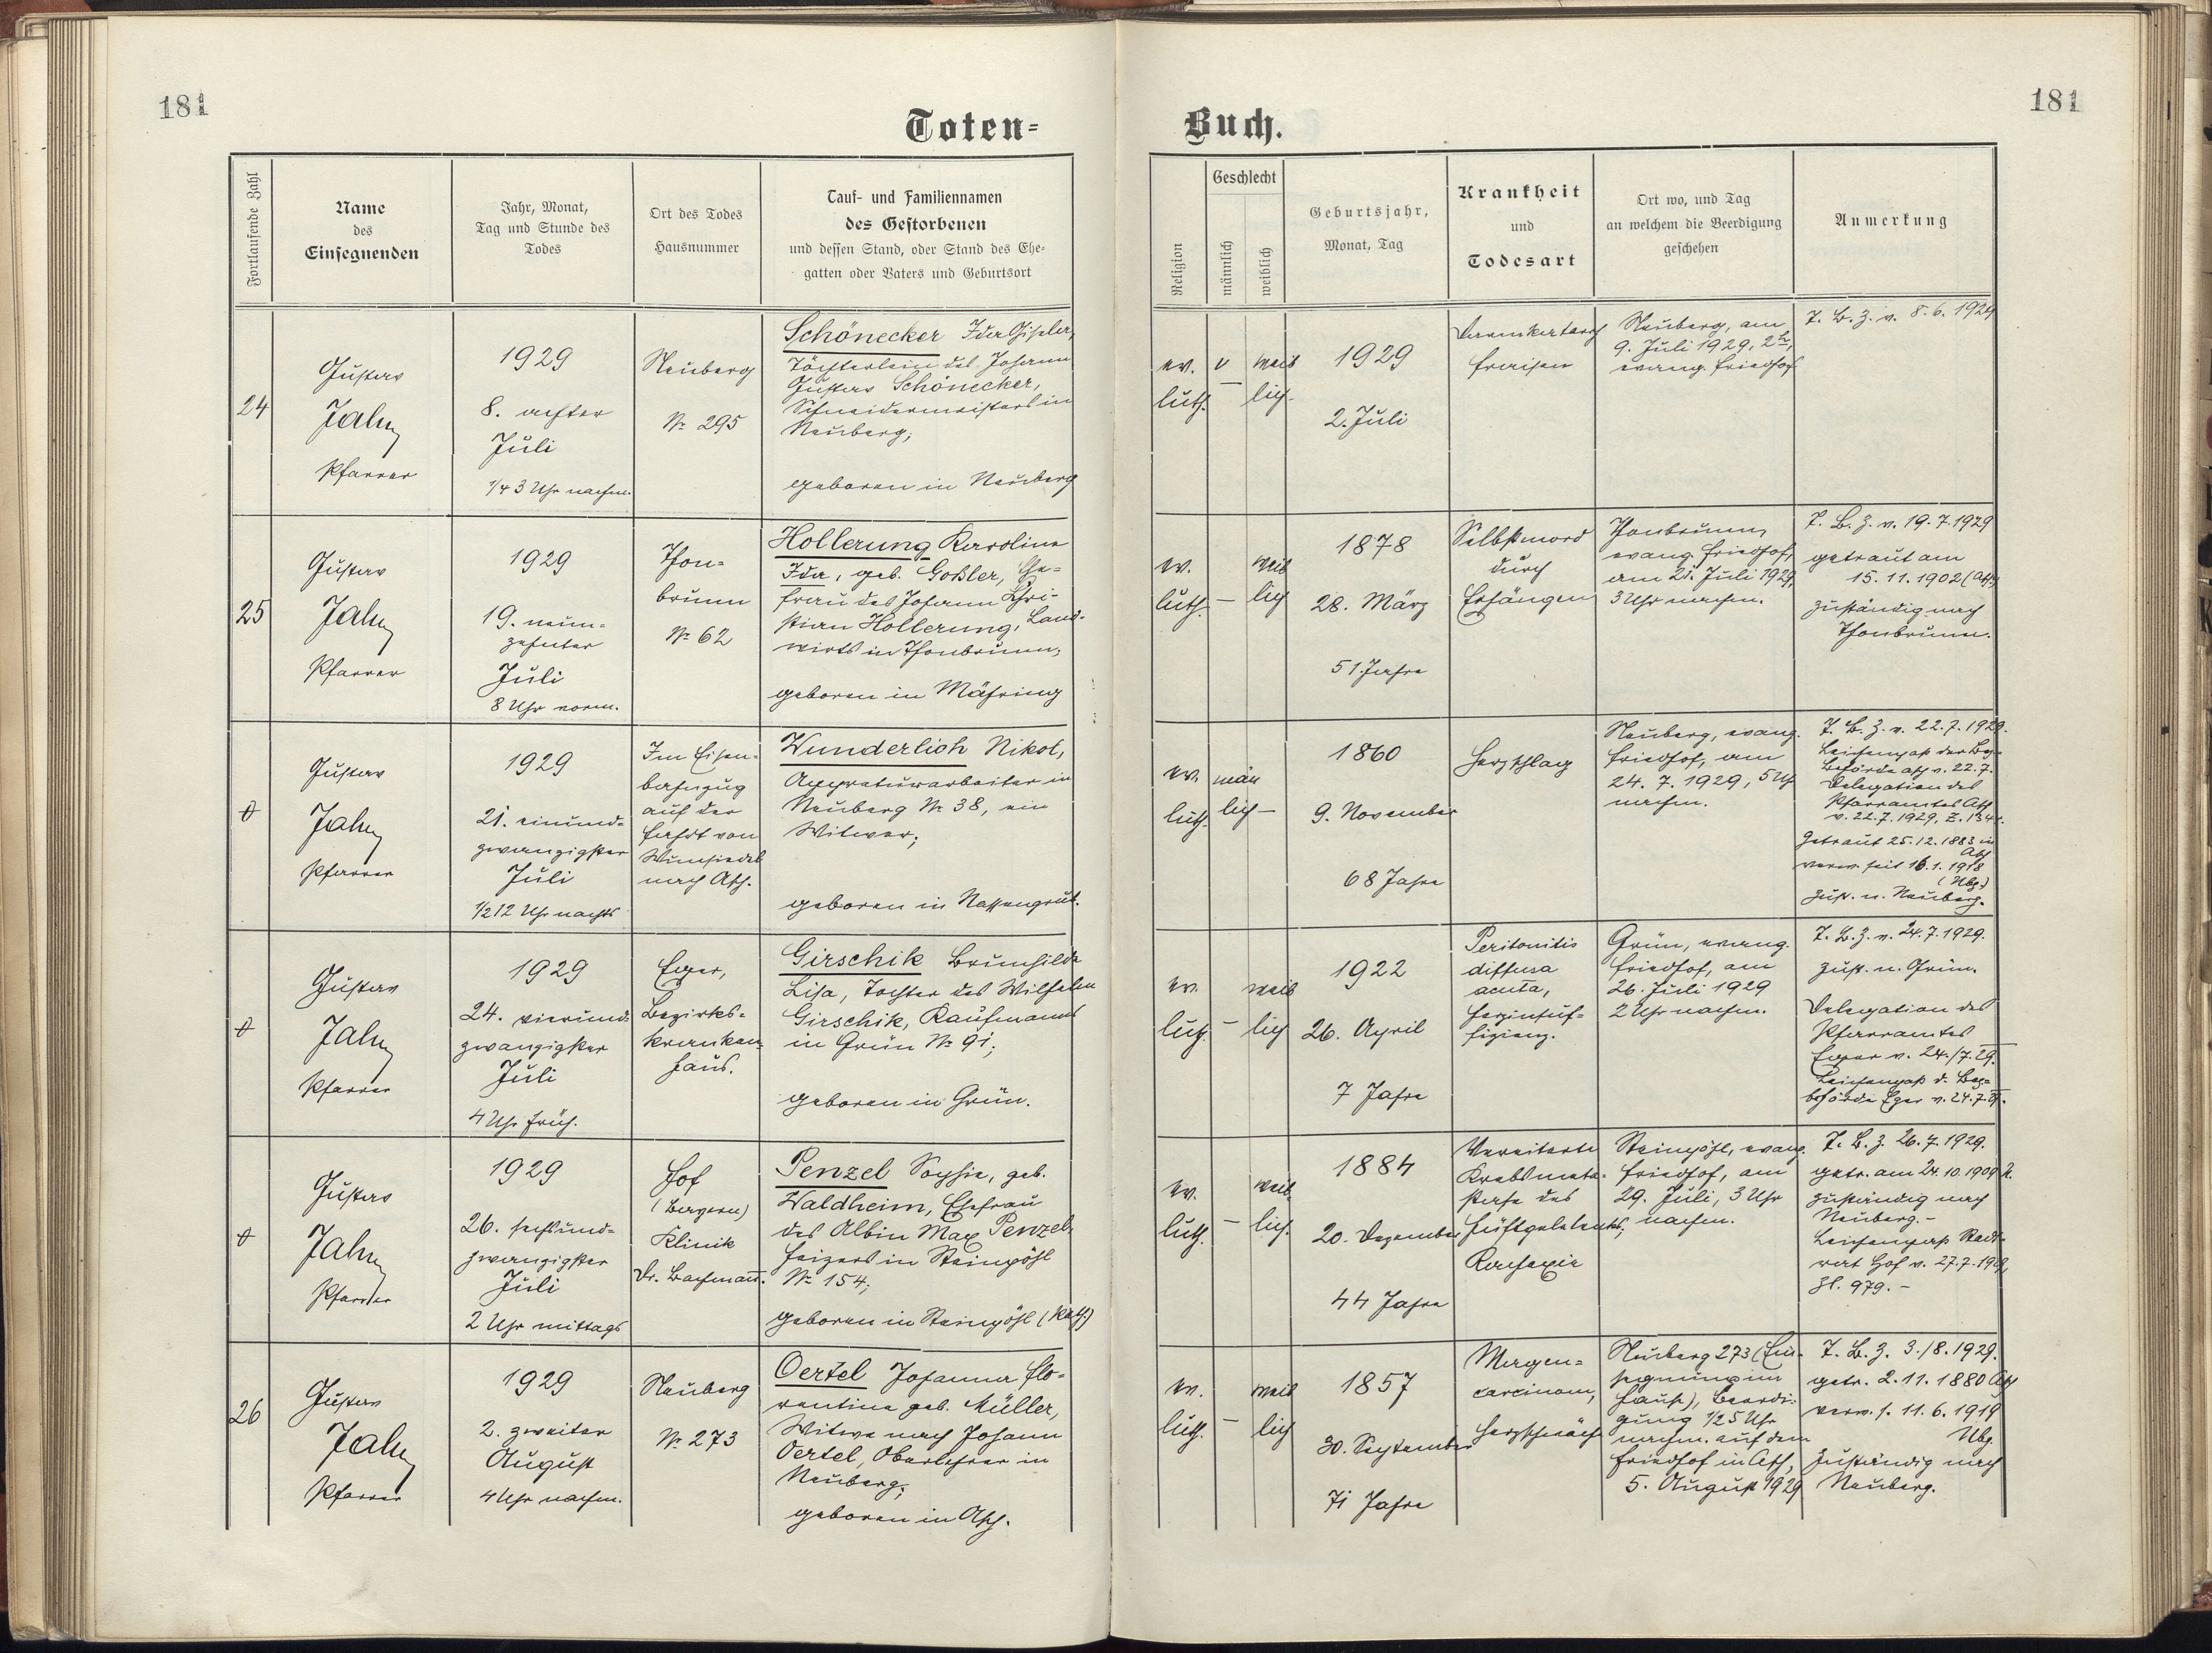 181
Toten-
Fortlaufende Zahl
Name
des
Einsegnenden
Jahr, Monat,
Tag und Stunde des
Todes
Ort des Todes
Hausnummer
Tauf- und Familiennamen
des Gestorbenen
und dessen Stand, oder Stand des Ehe-
gatten oder Vaters und Geburtsort
24
Gustav
Jahn
Pfarrer
1929
8. achter
Juli
1/4 3 Uhr nachm.
Neuberg
№ 295
Schönecker Ida Gisela,
Töchterlein des Johann
Gustav Schönecker,
Schneidermeisters in
Neuberg;
geboren in Neuberg
25
Gustav
Jahn
Pfarrer
1929
19. neun-
zehnter
Juli
8 Uhr vorm.
Thon-
brunn
№ 62
Hollerung Karoline
Ida, geb. Goßler, Ehe-
frau des Johann Chri-
stian Hollerung, Land-
wirts in Thonbrunn,
geboren in Mähring
Gustav
Jahn
Pfarrer
1929
21. einund-
zwanzigster
Juli
1/2 12 Uhr nachts
Im Eisen-
bahnzug
auf der
Fahrt von
Wunsiedel
nach Asch.
Wunderlich Nikol,
Appreturarbeiter in
Neuberg № 38, ein
Witwer;
geboren in Nassengrub.
Gustav
Jahn
Pfarrer
1929
24. vierund-
zwanzigster
Juli
4 Uhr früh.
Eger,
Bezirks-
kranken-
haus.
Girschik Brunhilde
Lisa, Tochter des Wilhelm
Girschik, Kaufmanns
in Grün № 91;
geboren in Grün.
Gustav
Jahn
Pfarrer
1929
26. sechsund-
zwanzigster
Juli
2 Uhr mittags
Hof
(Bayern)
Klinik
Dr. Bachmann.
Penzel Sophie, geb.
Waldheim, Ehefrau
des Albin Max Penzel,
Heizers in Steinpöhl
№ 154;
geboren in Steinpöhl (kath.)
26
Gustav
Jahn
Pfarrer
1929
2. zweiter
August
4 Uhr nachm.
Neuberg
№ 273
Oertel Johanna Flo-
rentine geb. Müller,
Witwe nach Johann
Oertel, Oberlehrer in
Neuberg;
geboren in Asch.
181
Buch.
Religion
Geschlecht
männlich
weiblich
Geburtsjahr,
Monat, Tag
Krankheit
und
Todesart
Ort wo, und Tag
an welchem die Beerdigung
geschehen
Anmerkung
ev.
luth.
weib
lich
1929
2. Juli
Darmkatarrh
Fraisen
Neuberg, am
9. Juli 1929, 2 h,
evang. Friedhof
T. B. Z. v. 8.6.1929
ev.
luth.
weib
lich
1878
28. März
51 Jahre
Selbstmord
durch
Erhängen
Thonbrunn,
evang. Friedhof,
am 21. Juli 1929
3 Uhr nachm.
T. B. Z. v. 19.7.1929
getraut am
15.11.1902 (Asch)
zuständig nach
Thonbrunn.
ev.
luth.
män
lich
1860
9. November
68 Jahre
Herzschlag
Neuberg, evang.
Friedhof, am
24.7.1929, 5 Uhr
nachm.
T. B. Z. v. 22.7.1929.
Leichenpaß der Bez-
Behörde Asch v. 22.7.
Delegation des
Pfarramtes Asch
v. 22.7.1929, Z. 134
getraut 25.12.1883 in
Asch
verw. seit 16.1.1918
(Nbg.)
zust. n. Neuberg.
ev.
luth.
weib
lich
1922
26. April
7 Jahre
Peritonitis
diffusa
acuta,
Herzinsuf-
fizienz.
Grün, evang.
Friedhof, am
26. Juli 1929
2 Uhr nachm.
T. B. Z. v. 24.7.1929.
zust. n. Grün.
Delegation des
Pfarramtes
Eger v. 24./7.29.
Leichenpaß d. Bez-
behörde Eger v. 24.7.29.
ev.
luth.
weib
lich.
1884
20. Dezember
44 Jahre
Vereiterte
Krebsmeta-
stase des
Hüftgelenks,
Kachexie
Steinpöhl, evang.
Friedhof, am
29. Juli, 3 Uhr
nachm.
T. B. Z. 26.7.1929.
getr. am 24.10.1909
zuständig nach
Neuberg. -
Leichenpass Stadt-
rat Hof v. 27.7.1929,
Zl. 979. -
ev.
luth.
weib
lich
1857
30. September
71 Jahre
Magen-
carcinom,
Herzschwäche
Neuberg 273 (Ein-
segnung im
Hause), Beerdi-
gung 1/2 5 Uhr
nachm. auf dem
Friedhof in Asch,
5. August 1929
T. B. Z. 3./8.1929.
getr. 2.11.1880 Asch
verw. s. 11.6.1919
Nbg.
zuständig nach
Neuberg.